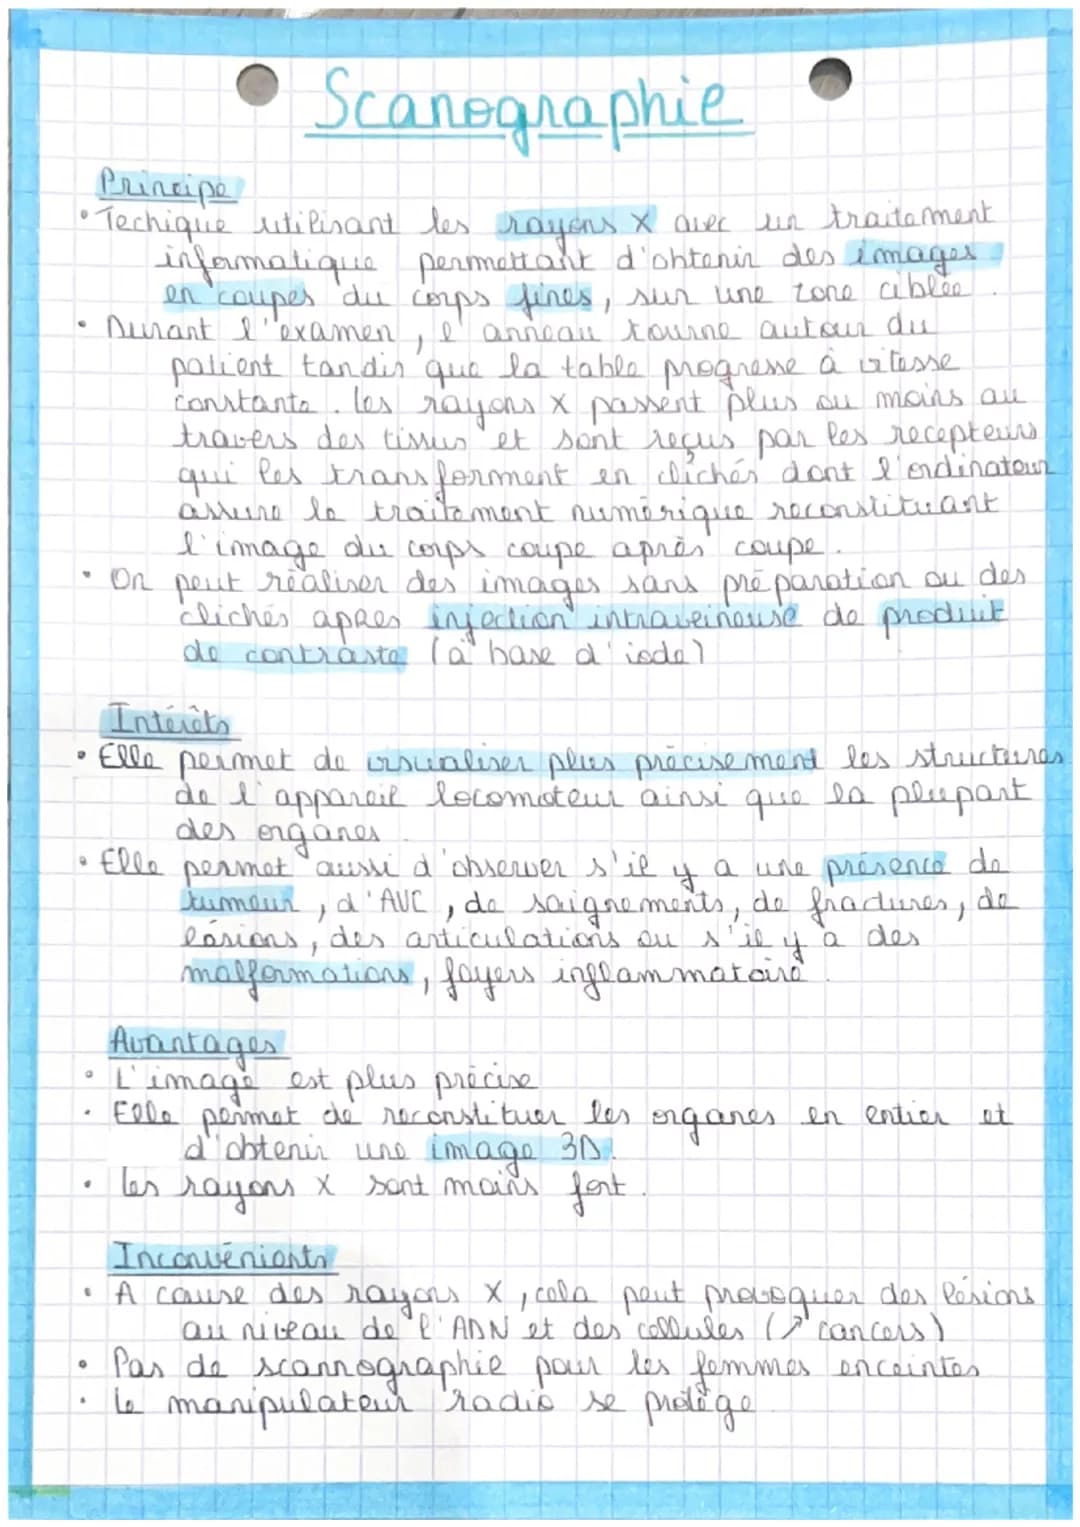 Scanographie
Principe
• Techique utilisant les rayons X avec un traitement
informatique permettant d'obtenir des images
en coupes du corps fines, sur une zone ciblée.
• Durant l'examen, l'anneau tourne autour du
patient tandis que la table progresse à vitesse
constante. les rayons X passent plus ou moins au
travers des tissus et sont reçus par les recepteurs
qui les transforment en clichés dont l'ordinateur
assure le traitement numérique reconstituant
l'image du corps coupe après coupe.
• On peut réaliser des images sans préparation ou des
clichés apres injection intraveineuse de produit
de contraste (à base d'iode)
Intérêts
• Elle permet de visualiser plus précisement les structures
de l'appareil locomoteur ainsi que la plupart
des organes.
• Elle permet aussi d'observer s'il y a une présence de
tumeur, d'AVC, de saignements, de fractures, de
lésions, des articulations ou s'il y a des
malformations, foyers inflammatoire.
Avantages
• L'image est plus précise
• Elle permet de reconstituer les organes en entier et
d'obtenir une image 3D.
• les rayons X sont moins fort.
Inconvénients
• A cause des rayons X, cela peut provoquer des lésions
au niveau de l'ADN et des cellules (↗ cancers)
• Pas de scannographie pour les femmes enceintes
• le manipulateur radio se protège